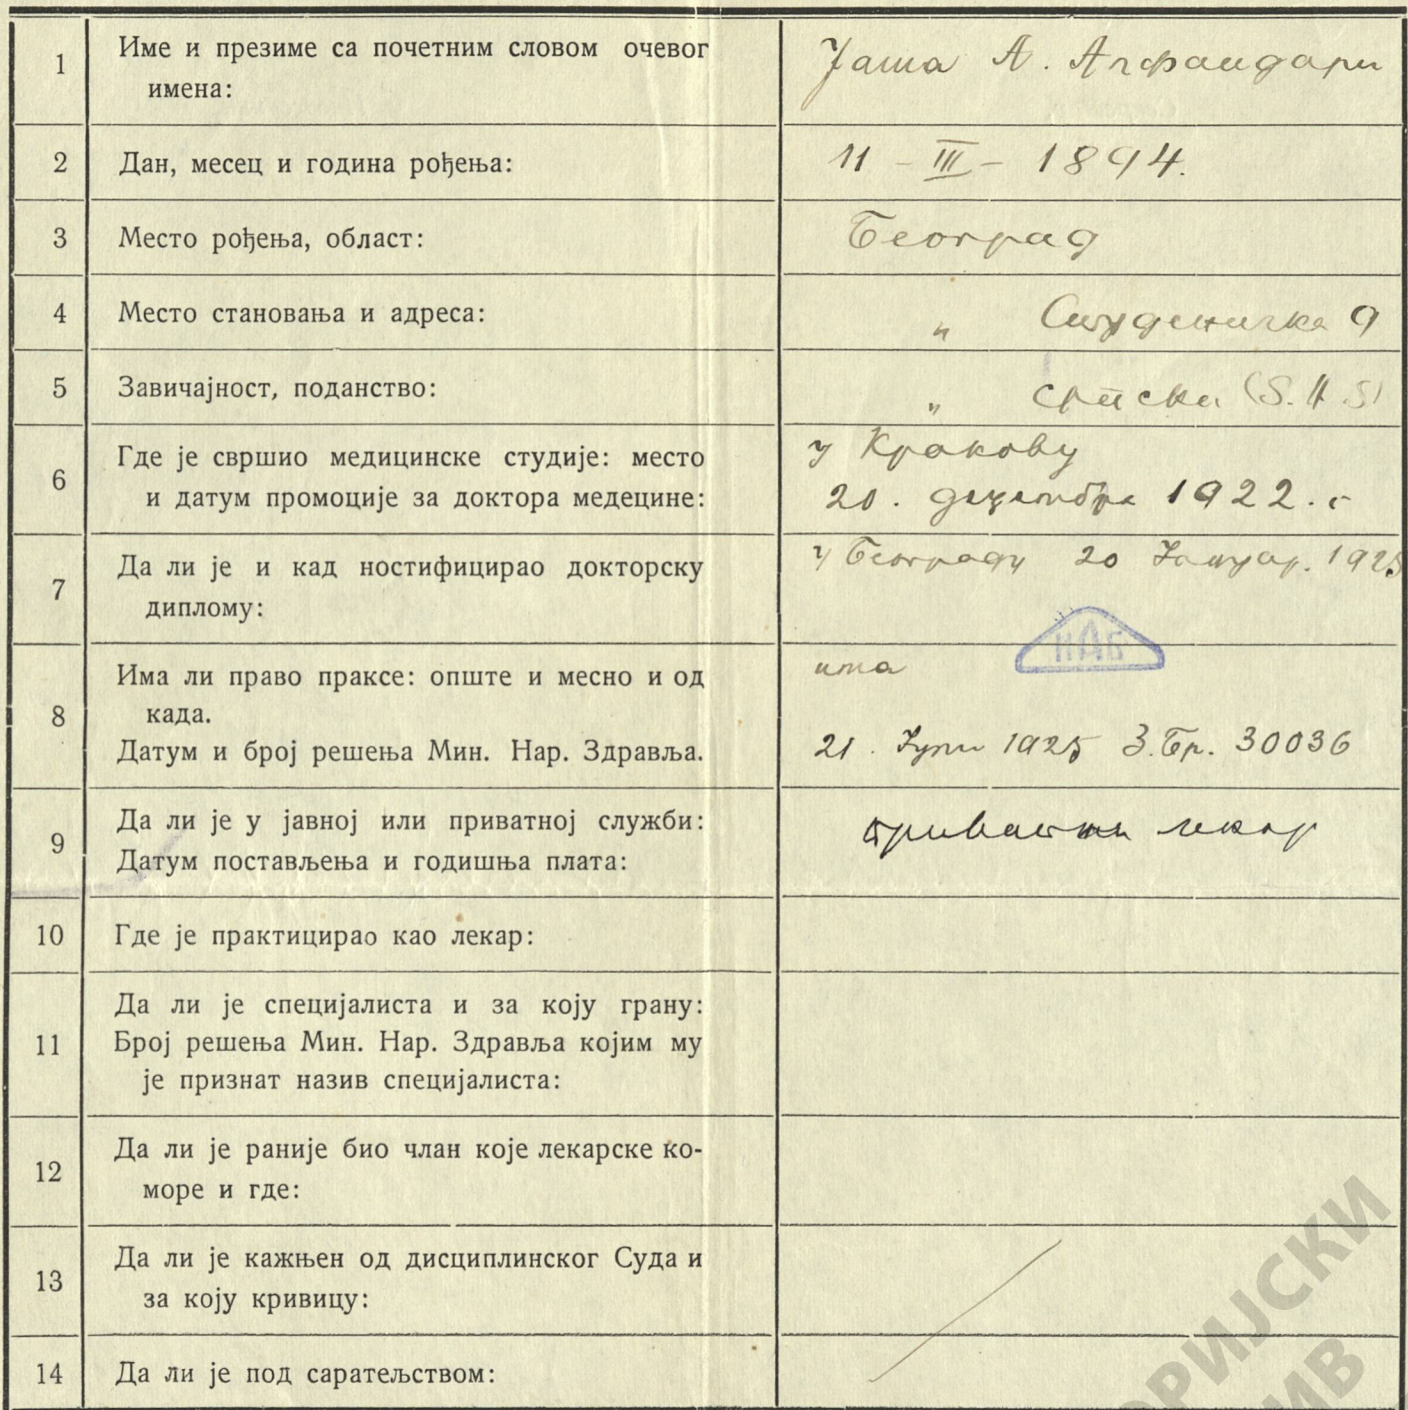 1
Име и презиме са почетним словом очевог
имена:
Јаша А. Алфандари
2
Дан, месец и година рођења:
11 - III - 1894.
3
Место рођења, област:
Београд
4
Место становања и адреса:
" Студеничка 9
5
Завичајност, поданство:
" српска (S. H. S)
6
Где је свршио медицинске студије: место
и датум промоције за доктора медецине:
у Кракову
20. децембра 1922. г
7
Да ли је и кад ностифицирао докторску
диплому:
у Београду 20 Јануар. 1925
КАБ
8
Има ли право праксе: опште и месно и од
када.
Датум и број решења Мин. Нар. Здравља.
има
21. Јули 1925 З. Бр. 30036
9
Да ли је у јавној или приватној служби:
Датум постављења и годишња плата:
приватни лекар
10
Где је практицирао као лекар:
11
Да ли је специјалиста и за коју грану:
Број решења Мин. Нар. Здравља којим му
је признат назив специјалиста:
12
Да ли је раније био члан које лекарске ко-
море и где:
13
Да ли је кажњен од дисциплинског Суда и
за коју кривицу:
14
Да ли је под саратељством:
ОРИЈСКИ
ИВ